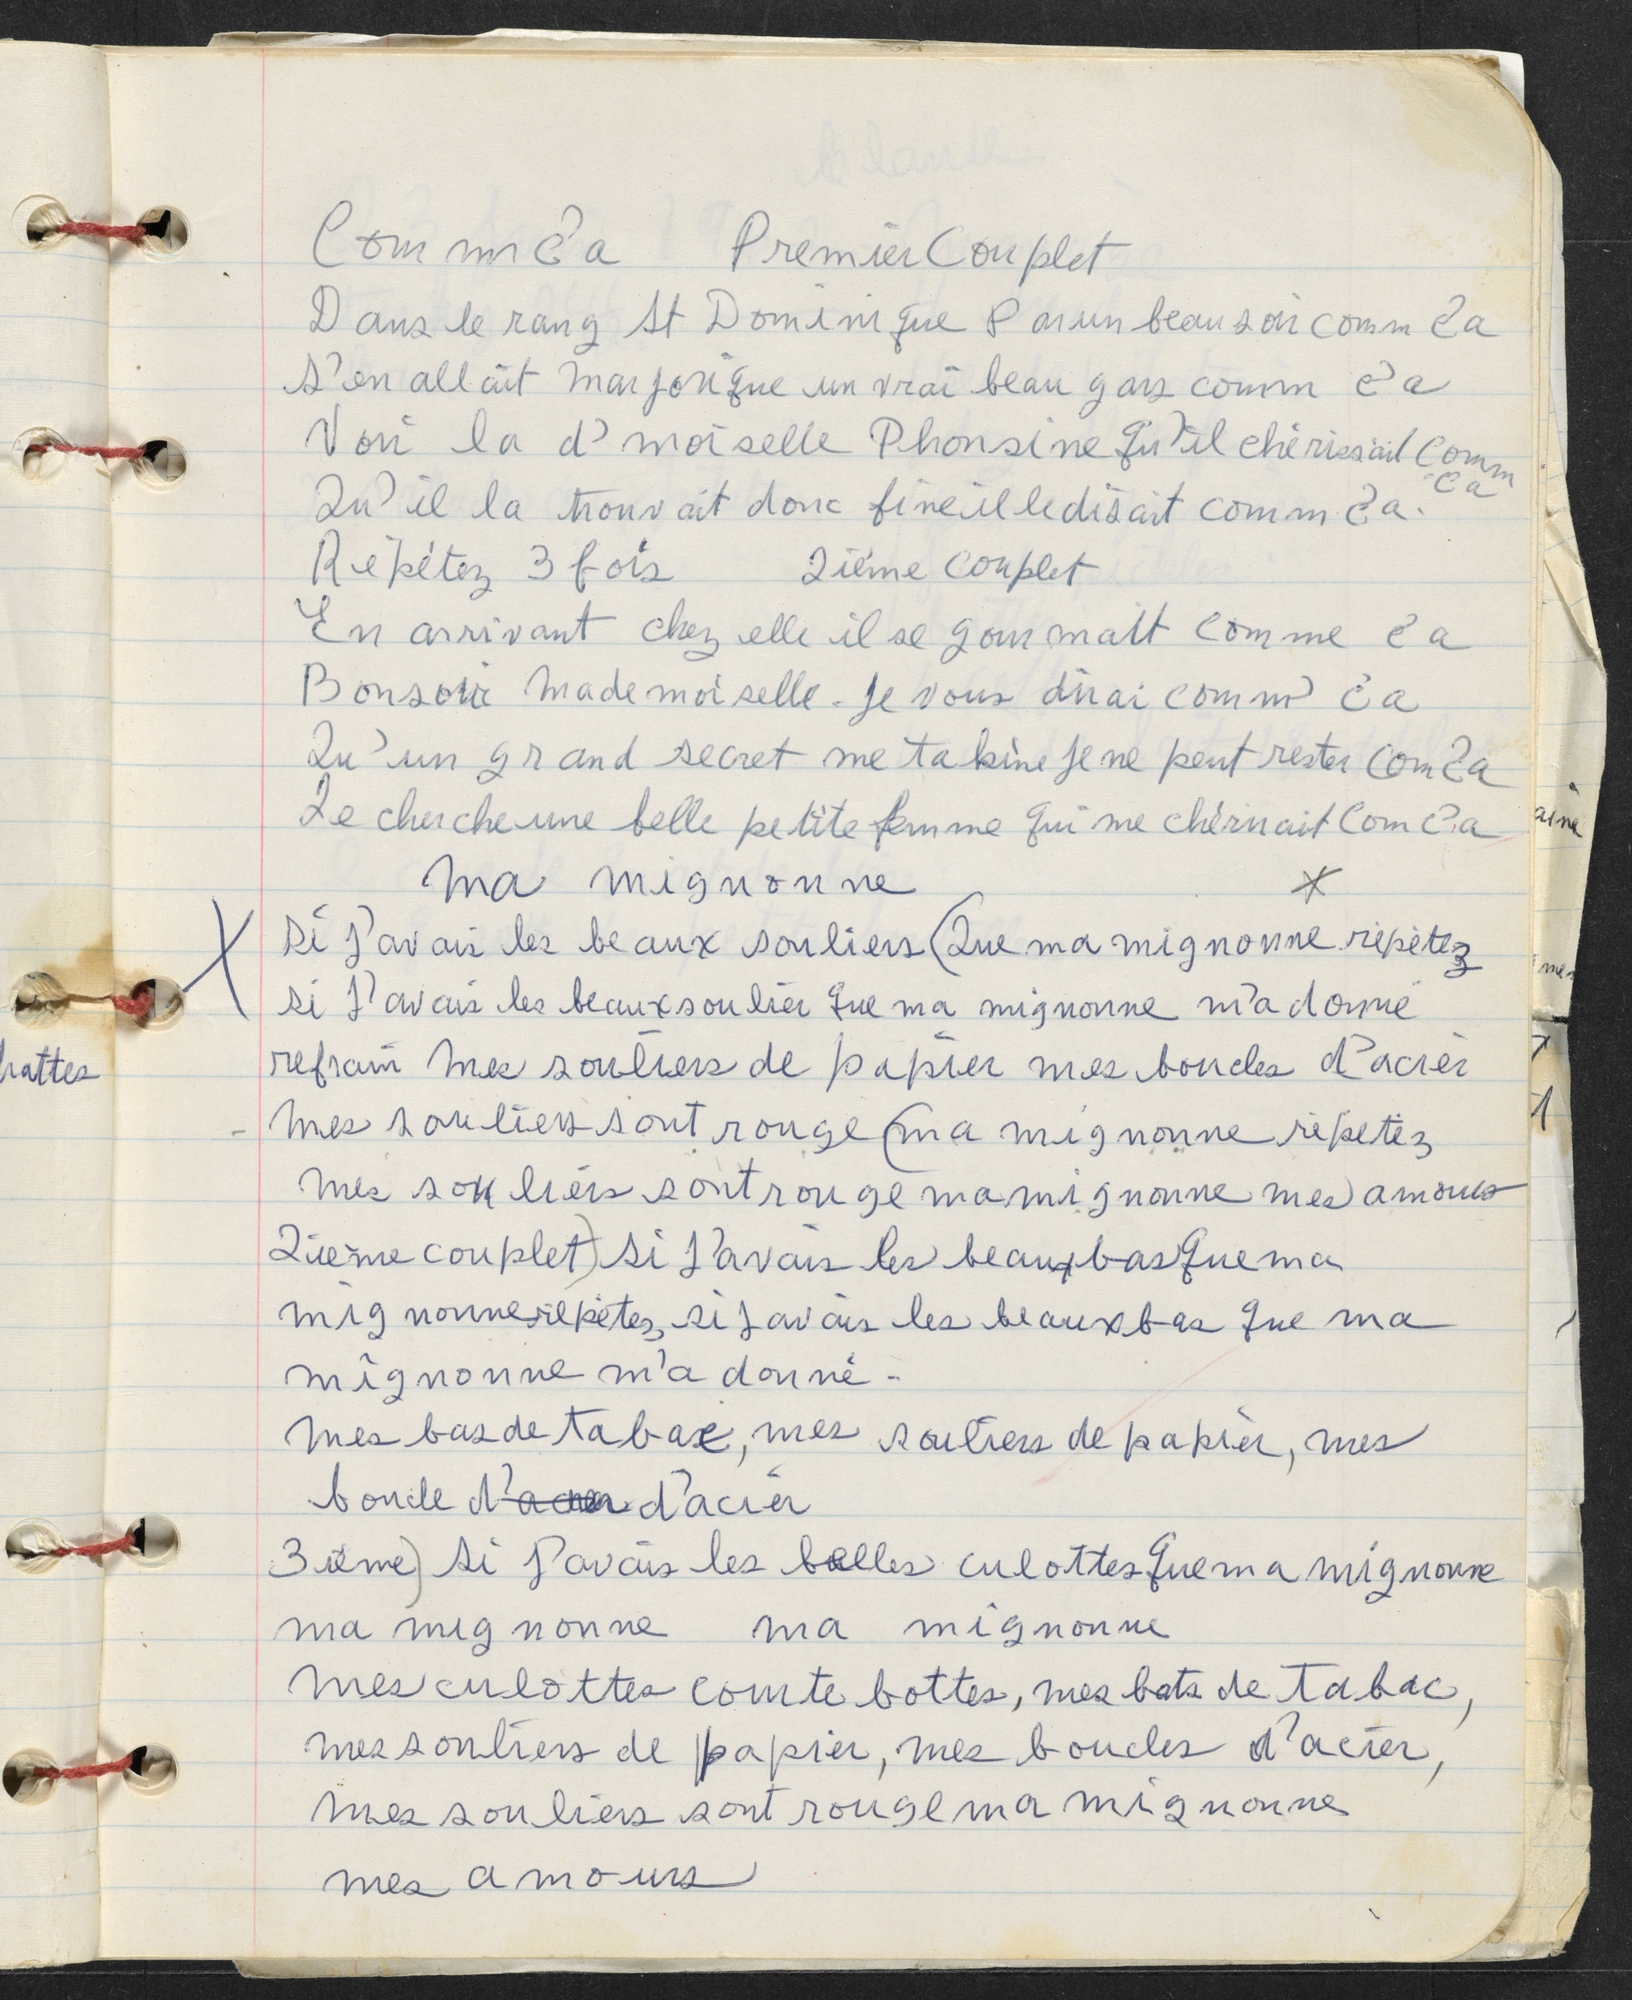 Comm c'a Premier Couplet
Dans le rang St Dominique Par un beau soir comm c'a
S'en allait marjorique un vrai beau gars comm c'a
Voir la d'moiselle Phonsine qu'il chérissait Comm c'a
Qu'il la trouvait donc fine il le disait comm c'a.
Répétez 3 fois 2ième couplet
En arrivant chez elle il se gourmait comme c'a
Bonsoir mademoiselle. Je vous dirai comm' c'a
Qu'un grand secret me takine je ne peut rester Com c'a
Je cherche une belle petite femme qui me chérirait Com c'a
ma mignonne
X si j'avais les beaux souliers (Que ma mignonne répétez
si j'avais les beaux soulier que ma mignonne m'a donné
refrain mes souliers de papier mes boucles d'acier
- mes souliers sont rouge (ma mignonne répétez
mes souliers sont rouge ma mignonne mes amours
2ième couplet) si j'avais les beaux bas que ma
mignonne répétez, si j'avais les beaux bas que ma
mignonne m'a donné -
mes bas de tabac, mes souliers de papier, mes
boucle d'acier d'acier
3ième) si j'avais les belles culottes que ma mignonne
ma mignonne ma mignonne
mes culottes comte bottes, mes bats de tabac,
mes souliers de papier, mes boucles d'acier,
mes souliers sont rouge ma mignonne
mes amours